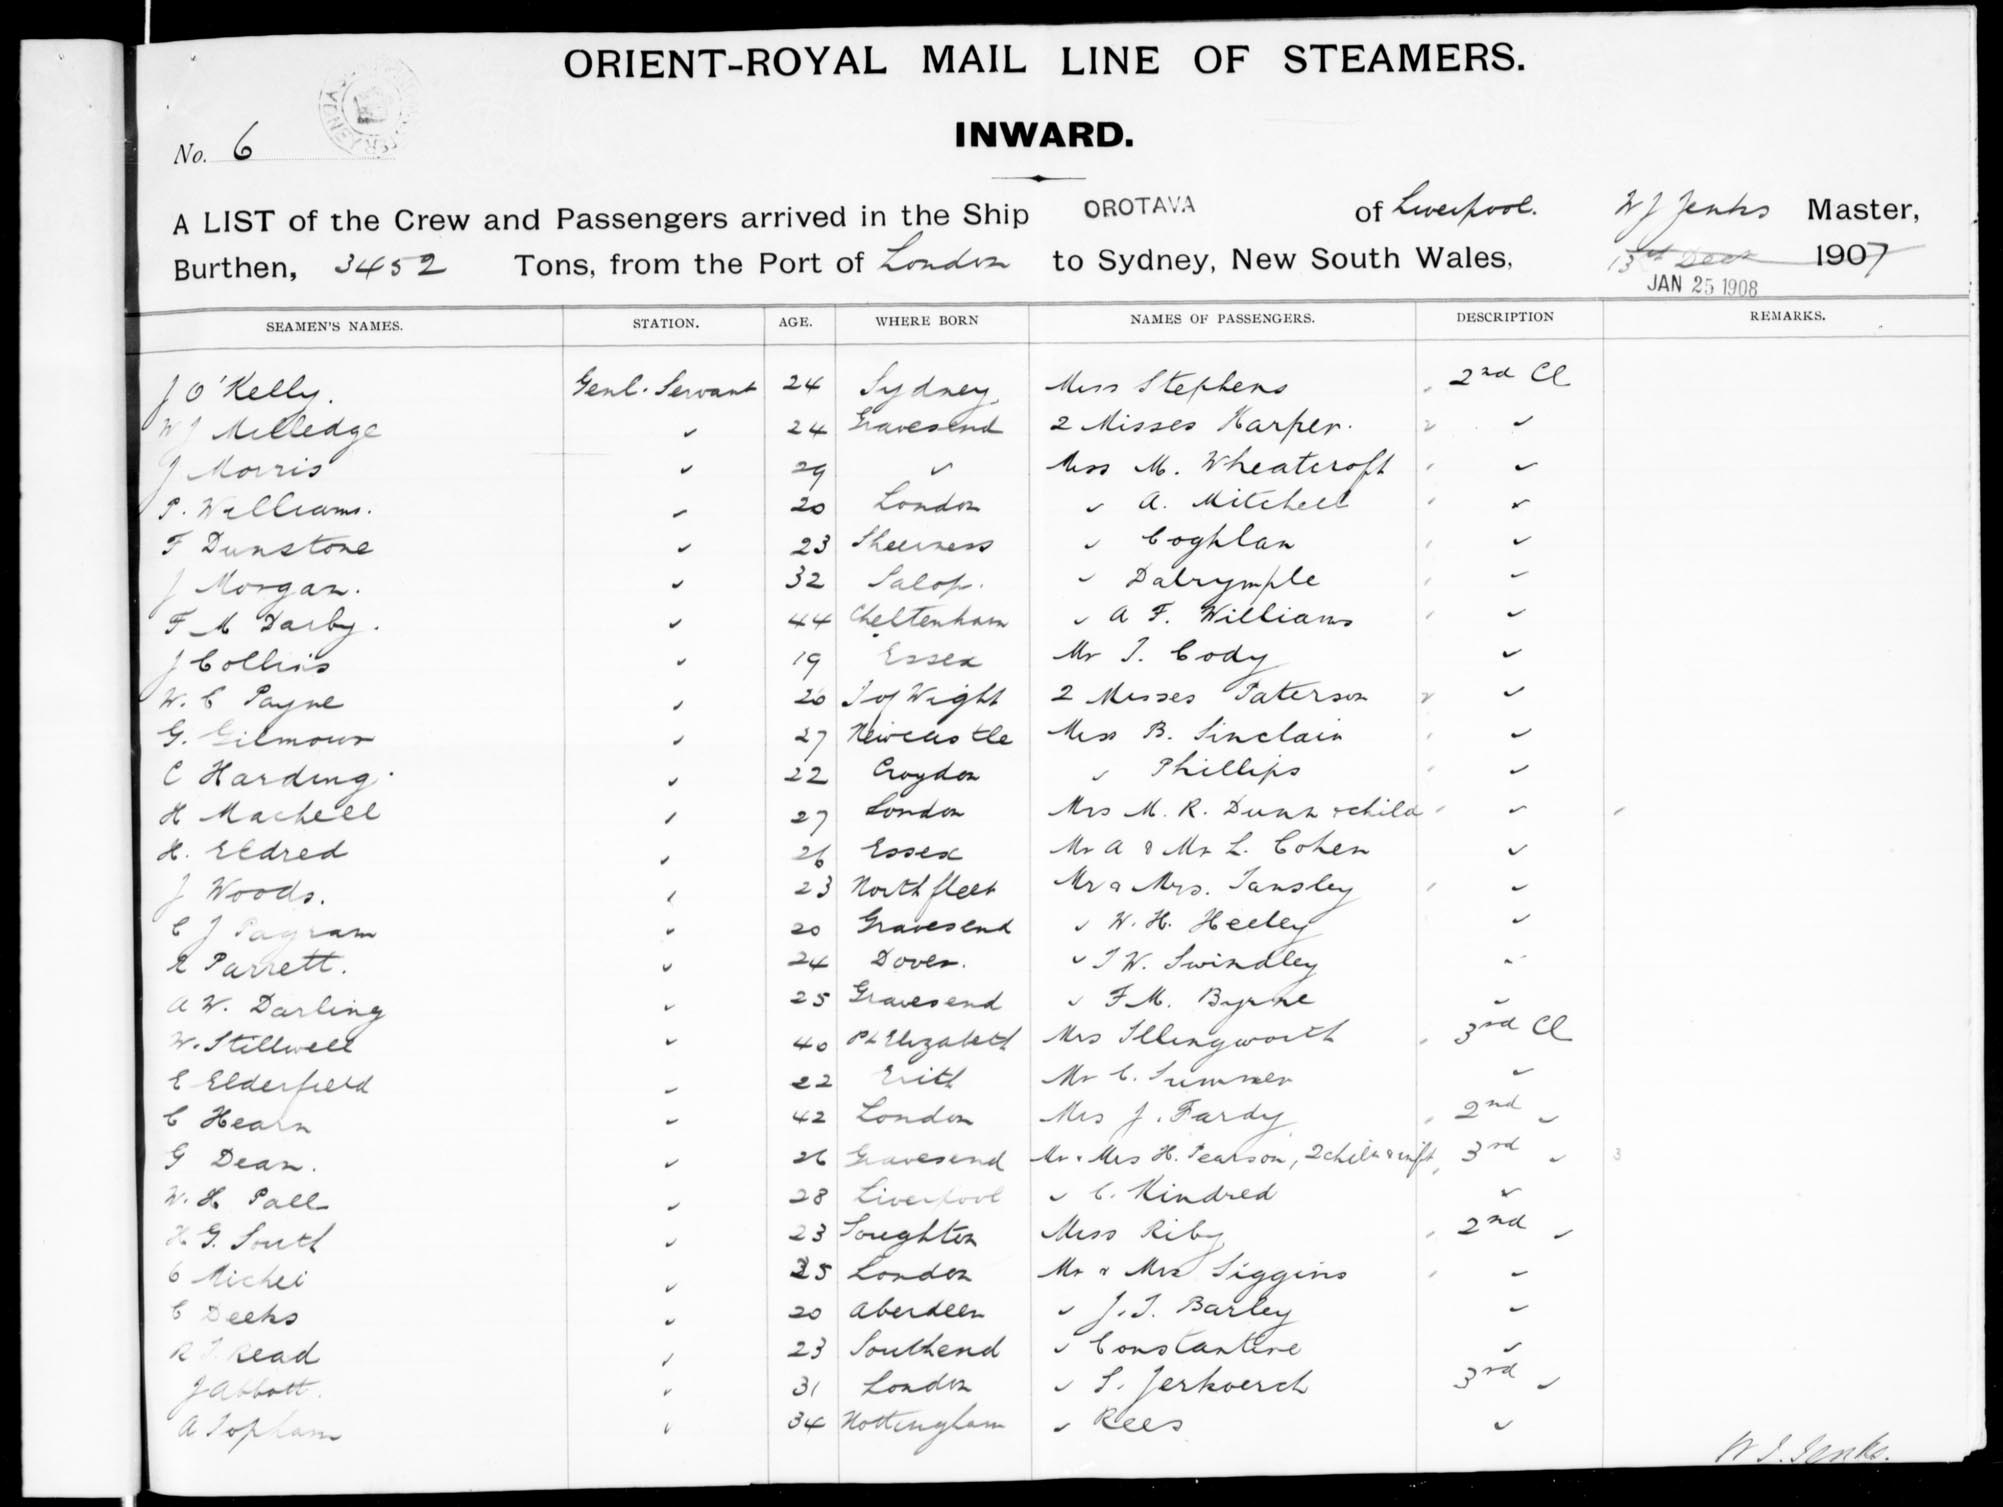 ORIENT-ROYAL MAIL LINE OF STEAMERS.
INWARD.
No. 6
A LIST of the Crew and Passengers arrived in the Ship OROTAVA of Liverpool. W J Jenks Master,
Burthen, 3452 Tons, from the Port of London to Sydney, New South Wales, 13th Decr 1907
JAN 25 1908
SEAMEN'S NAMES. STATION. AGE. WHERE BORN NAMES OF PASSENGERS. DESCRIPTION REMARKS.
J O'Kelly. Genl. Servant 24 Sydney Miss Stephens 2nd Cl
W J Milledge 24 Gravesend 2 Misses Harper.
J Morris 29 Miss M. Wheatcroft
P. Williams. 20 London A. Mitchell
F Dunstone 23 Sheerness Coghlan
J Morgan. 32 Salop. Dalrymple
F M Darby. 44 Cheltenham A F. Williams
J Collins 19 Essex Mr T. Cody
W. C Payne 20 I of Wight 2 Misses Paterson
G. Gilmour 27 Newcastle Miss B. Sinclair
C Harding. 22 Croydon Phillips
H Machell 27 London Mrs M. R. Dunn & child
H. Eldred 26 Essex Mr A & Mr L. Cohen
J Woods. 23 Northfleet Mr & Mrs. Tansley
C J Pagram 20 Gravesend W. H. Heeley
R Parrett. 24 Dover. T W. Swindley
A W. Darling 25 Gravesend F M. Byrne
W. Stillwell 40 Pt Elizabeth Mrs Illingworth 3rd Cl
E Elderfield 22 Erith Mr C. Summer
C Hearn 42 London Mrs J. Fardy 2nd
G Dean. 26 Gravesend Mr & Mrs H. Pearson, 2 child & inft 3rd 3
W. H Pall 28 Liverpool C. Kindred
H G. South 23 Loughton Miss Riby 2nd
C Michei 35 London Mr & Mrs Siggins
C Deeks 20 Aberdeen J. T. Barley
R T Read 23 Southend Constantine
J Abbott. 31 London S. Jerkoerch 3rd
A Topham 34 Nottingham Rees
W J. Jenks.